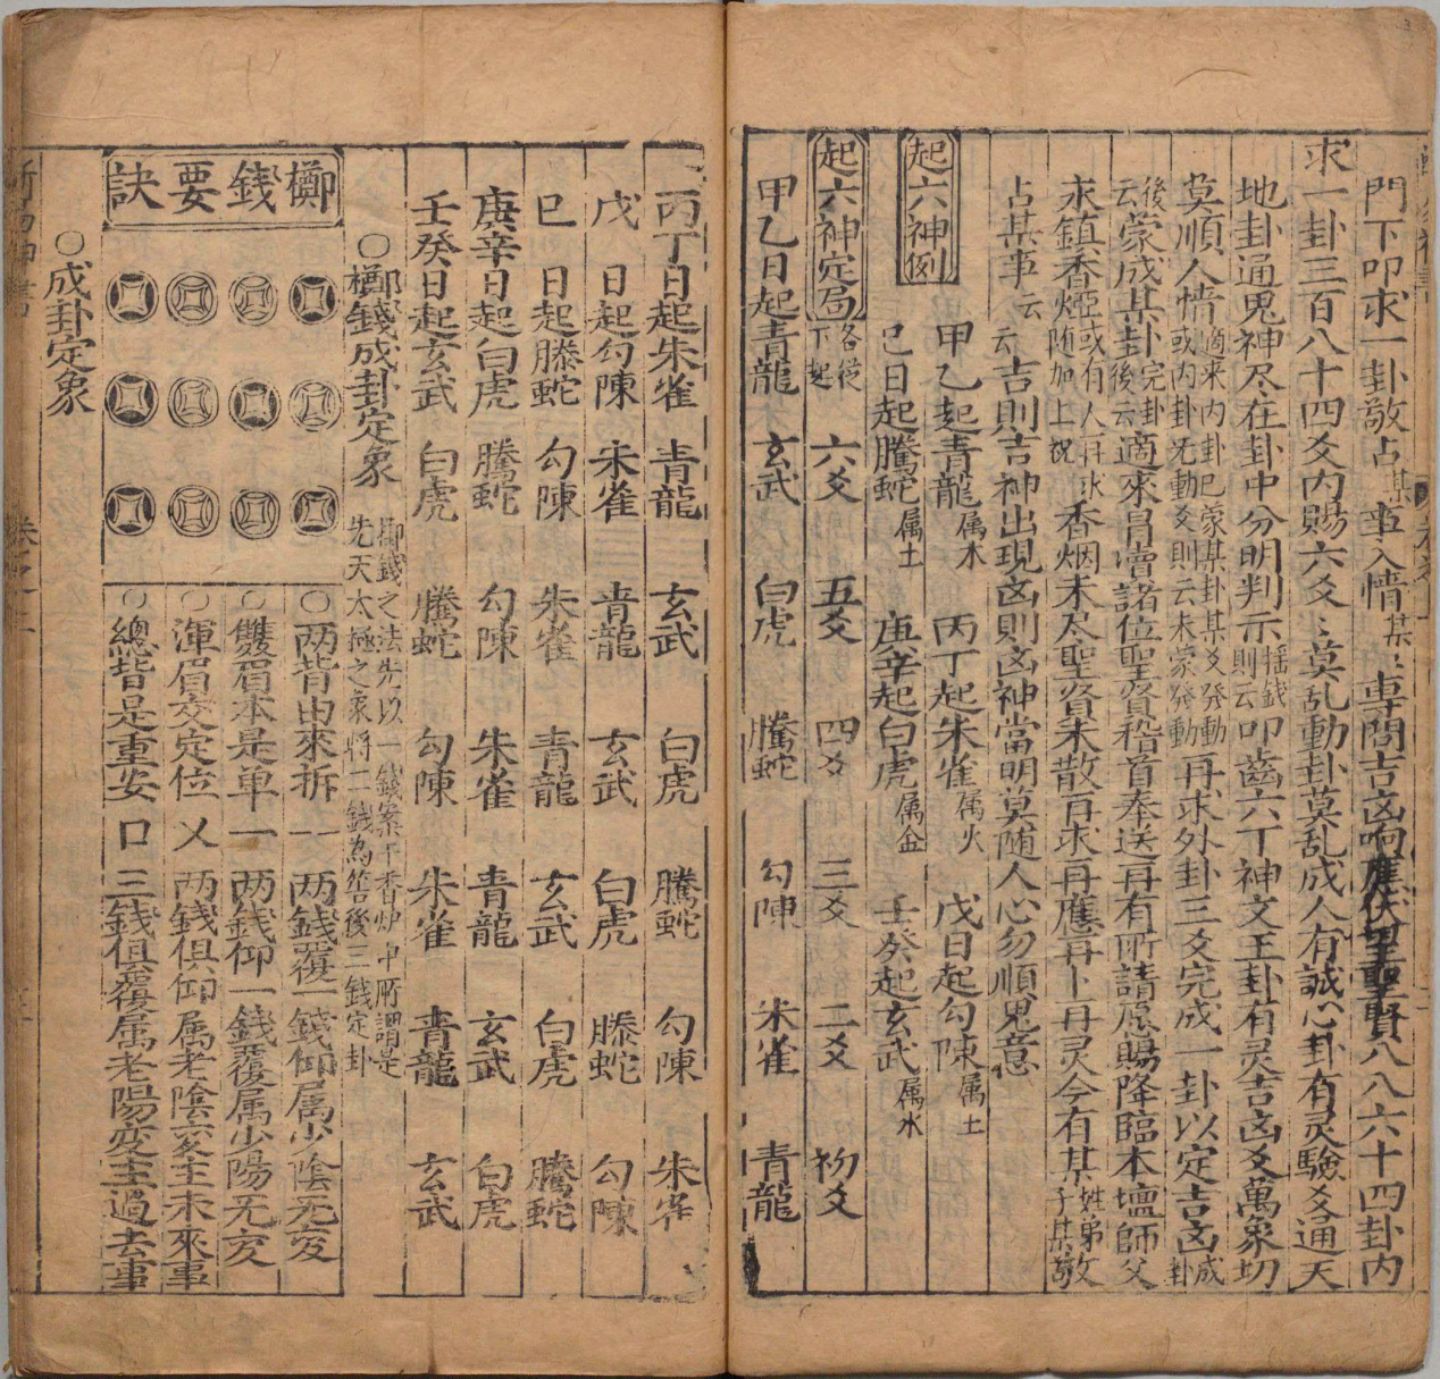 門下叩求一卦敬占某事入情某〻專問吉凶响應伏望聖賢八八六十四卦内
求一卦三百八十四爻内賜六爻〻莫乱動卦莫乱成人有誠心卦有灵驗爻通天
地卦通鬼神尽在卦中分明判示揺錢則云叩齒六丁神文王卦有灵吉凶爻萬象切
莫順人情適来内卦已蒙某卦某爻發動或内卦旡動爻則云未蒙發動再求外卦三爻完成一卦以定吉凶成卦
後云蒙成某卦完卦後云適來冐瀆諸位聖賢稽首奉送再有所請愿賜降臨本壇師父
求鎮香烟或有人再求随加上祝香烟未尽聖賢未散再求再應再卜再灵今有某姓弟子某敬
占某事云云吉則吉神出現凶則凶神當明莫随人心勿順鬼意
起六神例
甲乙起青龍属木 丙丁起朱雀属火 戊日起勾陳属土
己日起騰蛇属土 庚辛起白虎属金 壬癸起玄武属水
起六神定局各從下起 六爻 五爻 四爻 三爻 二爻 初爻
甲乙日起青龍 玄武 白虎 騰蛇 勾陳 朱雀 青龍
丙丁日起朱雀 青龍 玄武 白虎 騰蛇 勾陳 朱雀
戊日起勾陳 朱雀 青龍 玄武 白虎 滕蛇 勾陳
巳日起滕蛇 勾陳 朱雀 青龍 玄武 白虎 騰蛇
庚辛日起白虎 騰蛇 勾陳 朱雀 青龍 玄武 白虎
壬癸日起玄武 白虎 騰蛇 勾陳 朱雀 青龍 玄武
○擲錢成卦定象 擲錢之法先以一錢案于香炉中所謂是先天太極之象将二錢為筶後三錢定卦
擲錢要訣
○两背由來拆 两錢覆一錢仰属少陰旡変
○雙眉本是单 一 两錢仰一錢覆属少陽旡変
○渾眉交定位 乂 两錢俱仰属老陰变主未來事
○總皆是重安 口 三錢俱覆属老陽変主過去事
○成卦定象